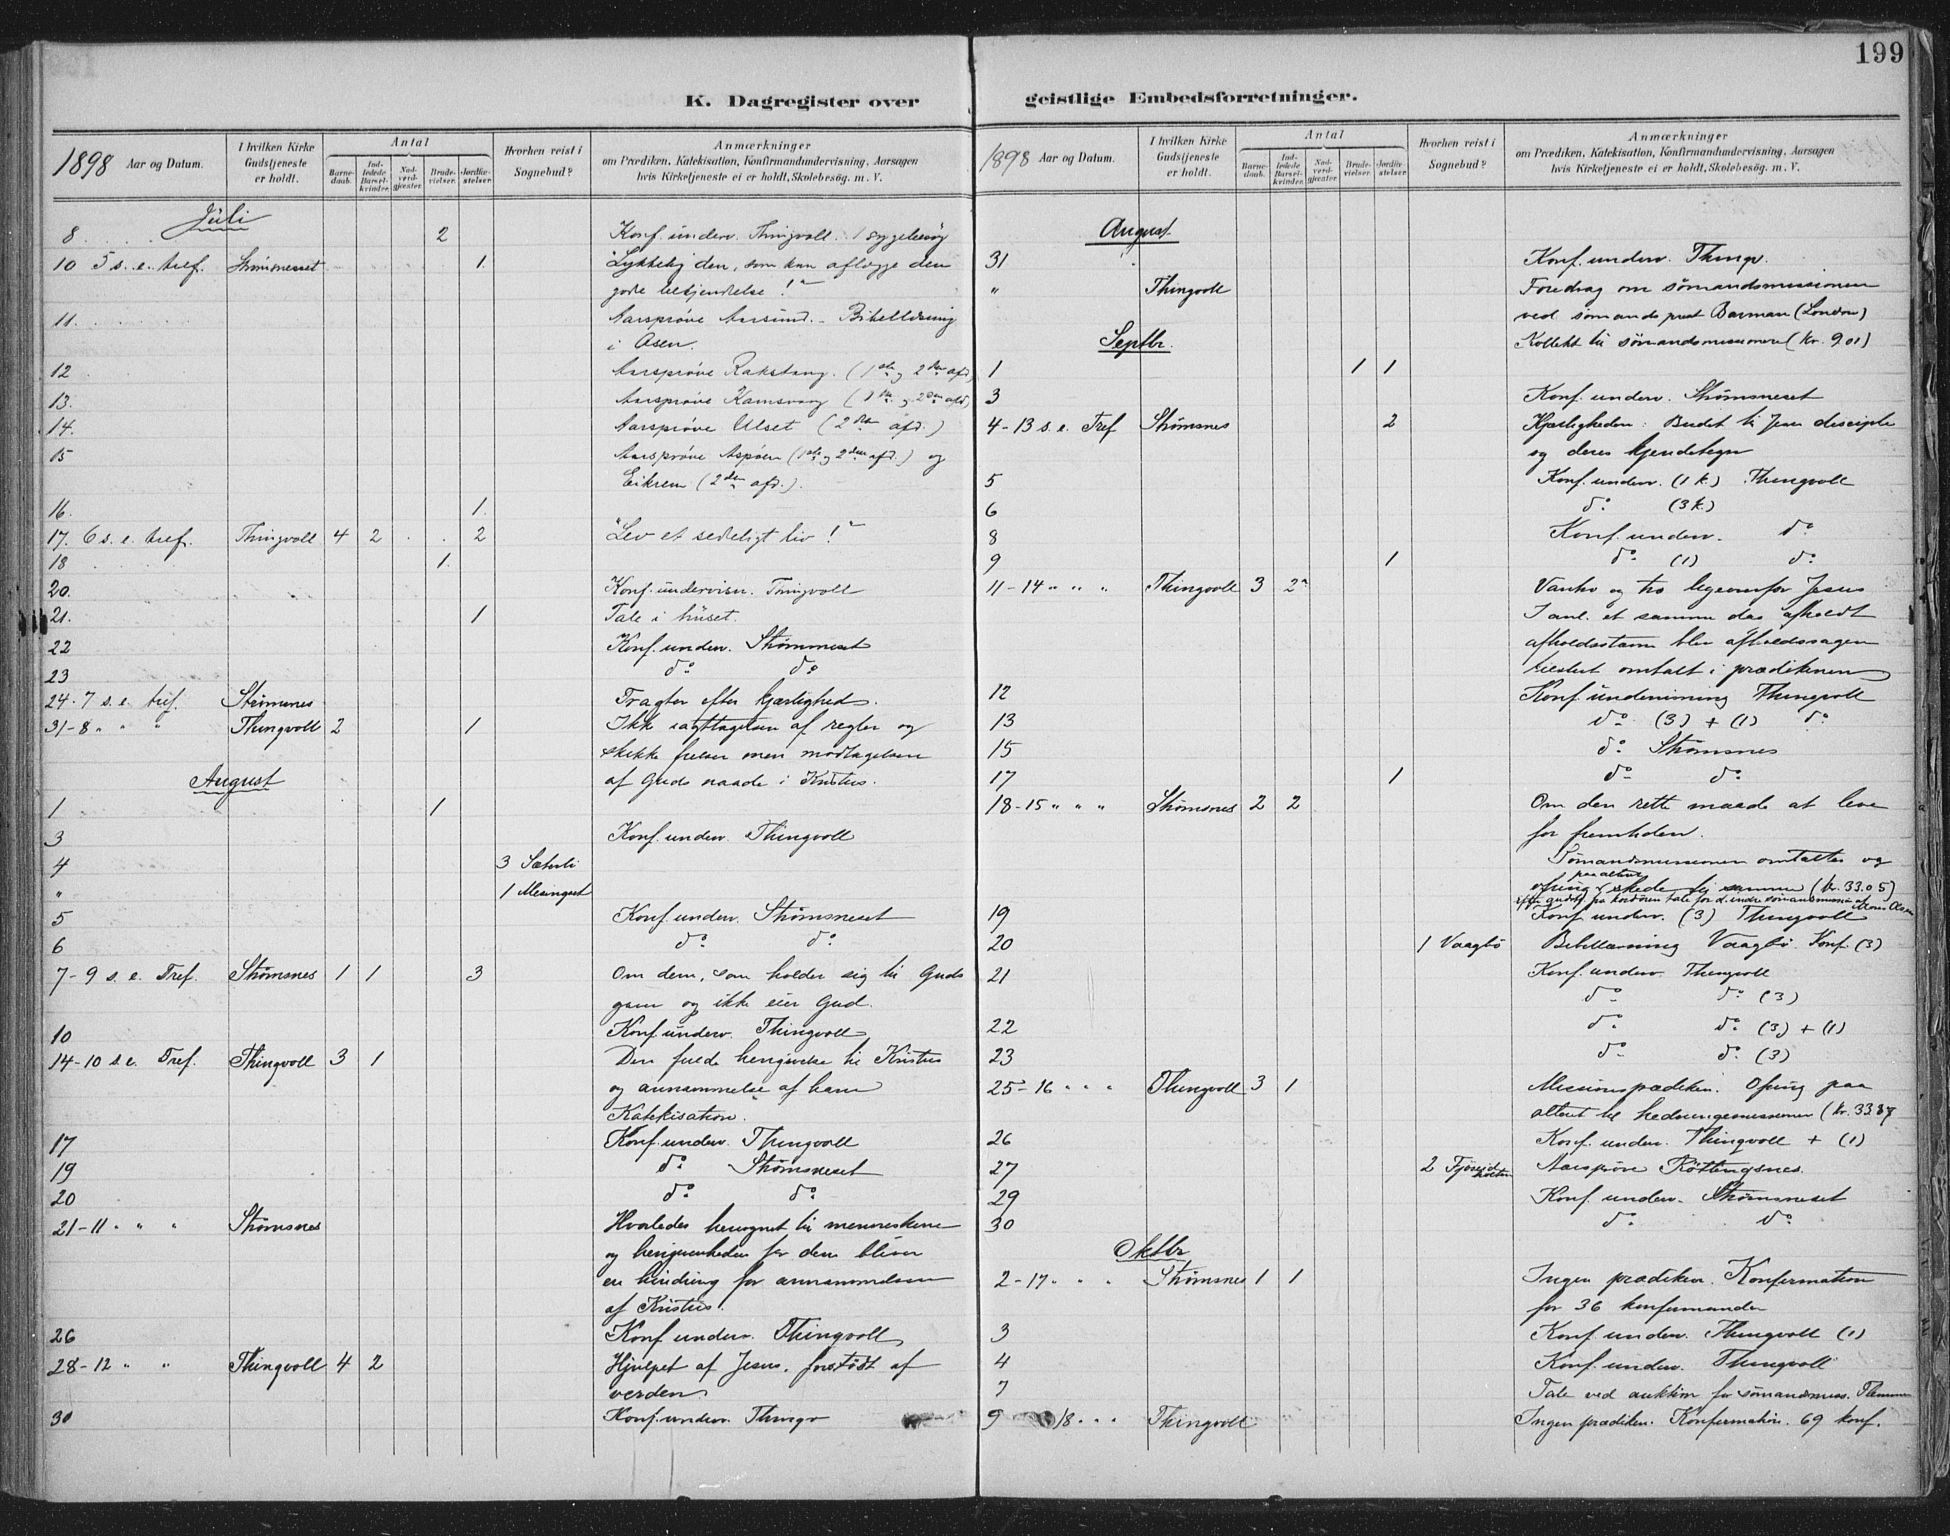 199
K. Dagregister over geistlige Embedsforretninger.
1898 Aar og Datum.
I hvilken Kirke Gudstjeneste er holdt.
Antal
Barne-daab.
Ind-ledede Barsel-kvinder.
Nad-verd-gjæster
Brude-vielser.
Jordfæ-stelser.
Hvorhen reist i Sognebud?
Anmærkninger
om Prædiken, Katekisation, Konfirmandundervisning, Aarsagen
hvis Kirketjeneste ei er holdt, Skolebesøg. m. V.
Juli
8 2 Konf. underv. Thingvoll. 1 sygebesøg
10 5 s. e. tref. Strømsneset 1 "Lykkelig den, som kan aflægge den
gode bekjendelse!"
11. Aarsprøve Aarsund. - Bibellæsning
i Aasen.
12 Aarsprøve Rakstang. (1ste og 2den afd)
13. Aarsprøve Kamsvaag (1ste og 2den afd)
14. Aarsprøve Ulset (2den afd.)
15 Aarsprøve Aspøen (1ste og 2den afd.) og
Eikrem (2den afd.).
16. 1.
17. 6 s. e. tref. Thingvoll 4 2 2 "Lev et sedeligt liv!"
18 1.
20. Konf. undervisn. Tingvoll
21. 1 Tale i huset.
22 Konf. underv. Strømsneset
23 do do
24-7 s. e. tref. Strømsnes Tragter efter kjærlighed.
31-8 " " " Thingvoll 2 1 Ikke iagttagelsen af regler og
skikke frelser men modtagelsen
af Guds naade i Kristus.
August
1 1
3 Konf. underv. Thingvoll
4 3 Sæterli
" 1 Meisingset
5 Konf. underv. Strømsneset
6 do do
7-9 s. e. Tref. Strømsnes 1 1 3 Om dem, som holder sig til Guds
gaver og ikke eier Gud.
10 Konf. underv. Thingvoll
14-10 s. e. Tref. Thingvoll 3 1 Den fulde hengivelse til Kristus
og annammelse af ham
Katekisation.
17 Konf. underv. Thingvoll
19 do Strømsneset
20 do do
21-11 " " " Strømsnes Hvorledes hensynet til menneskene
og hengivenheden for dem bliver
en hindring for annammelsen
af Kristus.
26 Konf. underv. Thingvoll
28-12 " " Thingvoll 4 2 Hjulpet af Jesus, forstødt af
verden
30 Konf. underv. Thingv
1898 Aar og Datum.
I hvilken Kirke Gudstjeneste er holdt.
Antal
Barne-daab.
Ind-ledede Barsel-kvinder.
Nad-verd-gjæster
Brude-vielser.
Jordfæ-stelser.
Hvorhen reist i Sognebud?
Anmærkninger
om Prædiken, Katekisation, Konfirmandundervisning, Aarsagen
hvis Kirketjeneste ei er holdt, Skolebesøg. m. V.
August
31 Konf. underv. Thingv.
" Thingvoll Foredrag om sømandsmissionen
ved sømandsprest Barman (London)
Kollekt til sømandsmissionen (kr. 9.01)
Septbr.
1 1 1
3 Konf. underv. Strømsneset
4-13 s. e. Tref Strømsnes 2 Kjærligheden: Budet til Jesu disciple
og deres kjendetegn
5 Konf. underv. (1 k.) Thingvoll
6 do (3 k.)
8 Konf. underv. do
9 1 do (1) do
11-14 " " " Thingvoll 3 2 Vantro og tro ligeoverfor Jesus
I anl. et samme dag afholdt
afholdsstævne blev afholdssagen
omtalt i prædikenen
12 Konf. undervisning Thingvoll
13 do (3) + (1) do
15 do Strømsnes
17 1 do do
18-15 " " " Strømsnes 2 2 Om den rette maade at leve
for fremtiden.
Sømandsmissionen omtaltes og
ofring paa alteret skede til samme (kr. 33.05)
efter gudstj. paa kordøren tale for d. indre sømandsmission af Olsen
19 Konf. underv. (3) Thingvoll
20 1 Vaagbø Bibellæsning Vaagbø. Konf. (3)
21 Konf. underv. Thingvoll
do do (3)
22 do do (3) + (1)
23 do do (3)
25-16 " " " Thingvoll 3 1 Missionsprædiken. Ofring paa
alteret til hedningemissionen (kr. 33.87
26 Konf. underv. Thingvoll + (1)
27 2 Aarsprøve Røttingsnes.
29 Konf. underv. Strømsneset
30 do do
Oktbr
2-17 " " " Strømsnes 1 1 Ingen prædiken. Konfirmation
for 36 konfirmander
3 Konf. underv. Thingvoll (1)
4 Konf. underv. Thingvoll
7 Tale ved auktion for sømandsmiss.
9 18 " " " Thingvoll Ingen prædiken. Konfirmation. 69 konf.